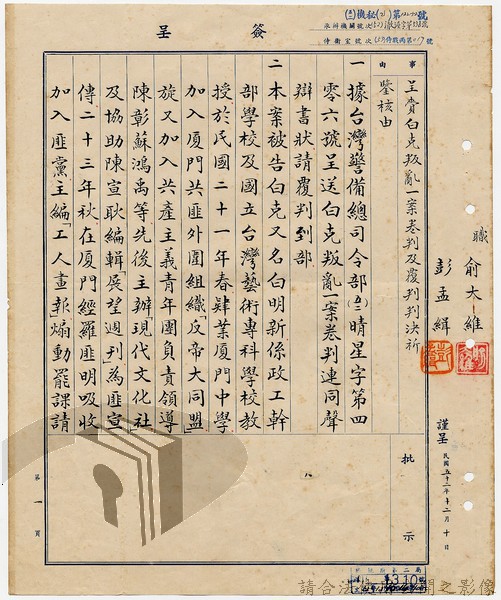 簽呈
事由
呈賫白克叛亂一案卷判及覆判判決祈
鑒核由
一據台灣警備總司令部(五二)晴星字第四
零六號呈送白克叛亂一案卷判連同聲
辯書狀請覆判到部
二本案被告白克又名白明新係政工幹
部學校及國立台灣藝術專科學校教
授於民國二十一年春肄業厦門中學
加入厦門共匪外圍組織「反帝大同盟」
旋又加入共產主義青年團負責領導
陳彰蘇鴻禹等先後主辦「現代文化社」
及協助陳宣耿編輯「展望週刊」為匪宣
傳二十三年秋在厦門經羅匪明吸收
加入匪黨主編「工人畫報」煽動罷課請
批示
職
俞大維
彭孟緝
謹呈
民國五十二年十二月十日
第一頁
310